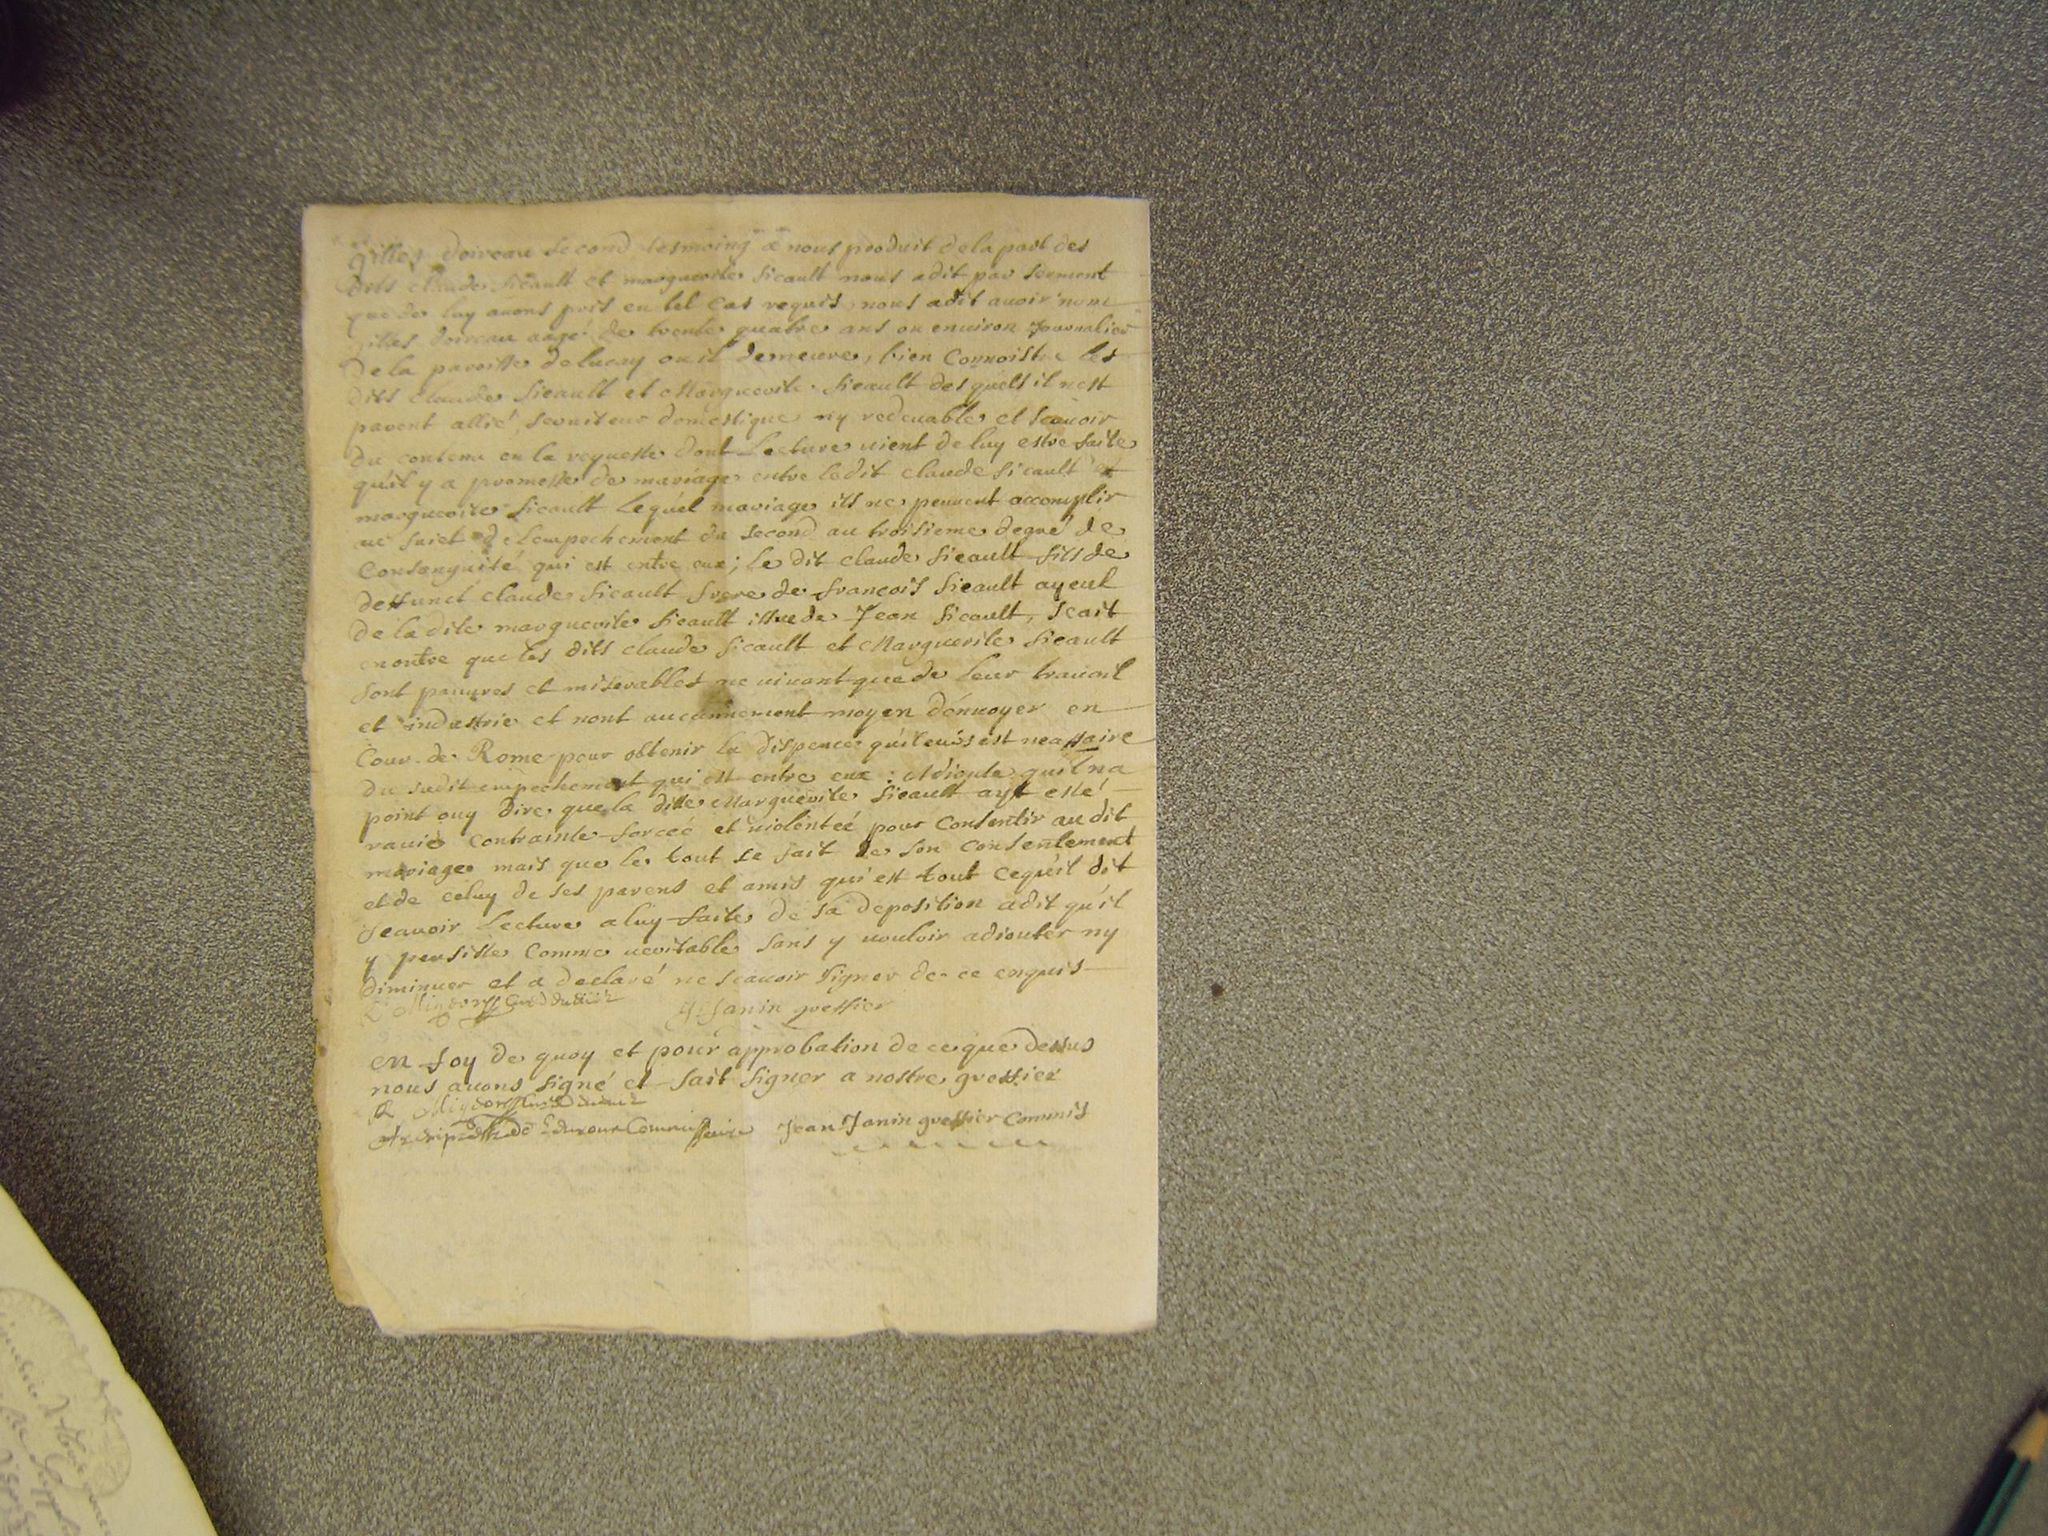 gilles doireau second tesmoing a nous produit de la part des
dits claude sicault et marguerite sicault nous a dit par serment
que de luy avons pris en tel cas requis, nous a dit auoir nom
gilles doireau aagé de trente quatre ans ou enuiron Journalier
de la paroisse de lucay ou il demeure, bien Connoistre les
dits claude sicault et Marguerite sicault desquels il nest
parent allié, seruiteur domestique ny redeuable et scauoir
du contenu en la requeste dont Lecture uient de luy estre faite
quil y a promesse de mariage entre le dit claude sicault et
marguerite sicault lequel mariage ils ne peuuent accomplir
au suiet de lempechement du second au troisieme degré de
Consanguité qui est entre eux; le dit claude sicault fils de
deffunct claude sicault frere de francois sicault ayeul
de la dite marguerite sicault issue de Jean sicault, scait
en outre que les dits claude sicault et Marguerite sicault
sont pauures et miserables ne uiuant que de leur trauail
et industrie et nont aucunnement moyen d'enuoyer en
Cour de Rome pour obtenir la dispence qui leurs est necessaire
du sudit empechement qui est entre eux: Adioute quil na
point ouy dire que la ditte Marguerite sicault ayt esté
rauie contrainte forceé et uiolenteé pour Consentir au dit
mariage mais que le tout se fait de son consentement
et de celuy de ses parens et amis qui est tout cequil dit
scauoir Lecture a luy faite de sa deposition a dit quil
y persiste Comme ueritable sans y uouloir adiouter ny
diminuer et a declaré ne scauoir signer de ce enquis
J Janin greffier
en foy de quoy et pour approbation de ce que dessus
nous auons signé et fait signer a nostre greffier
Commissaire Jean Janin greffier Commis